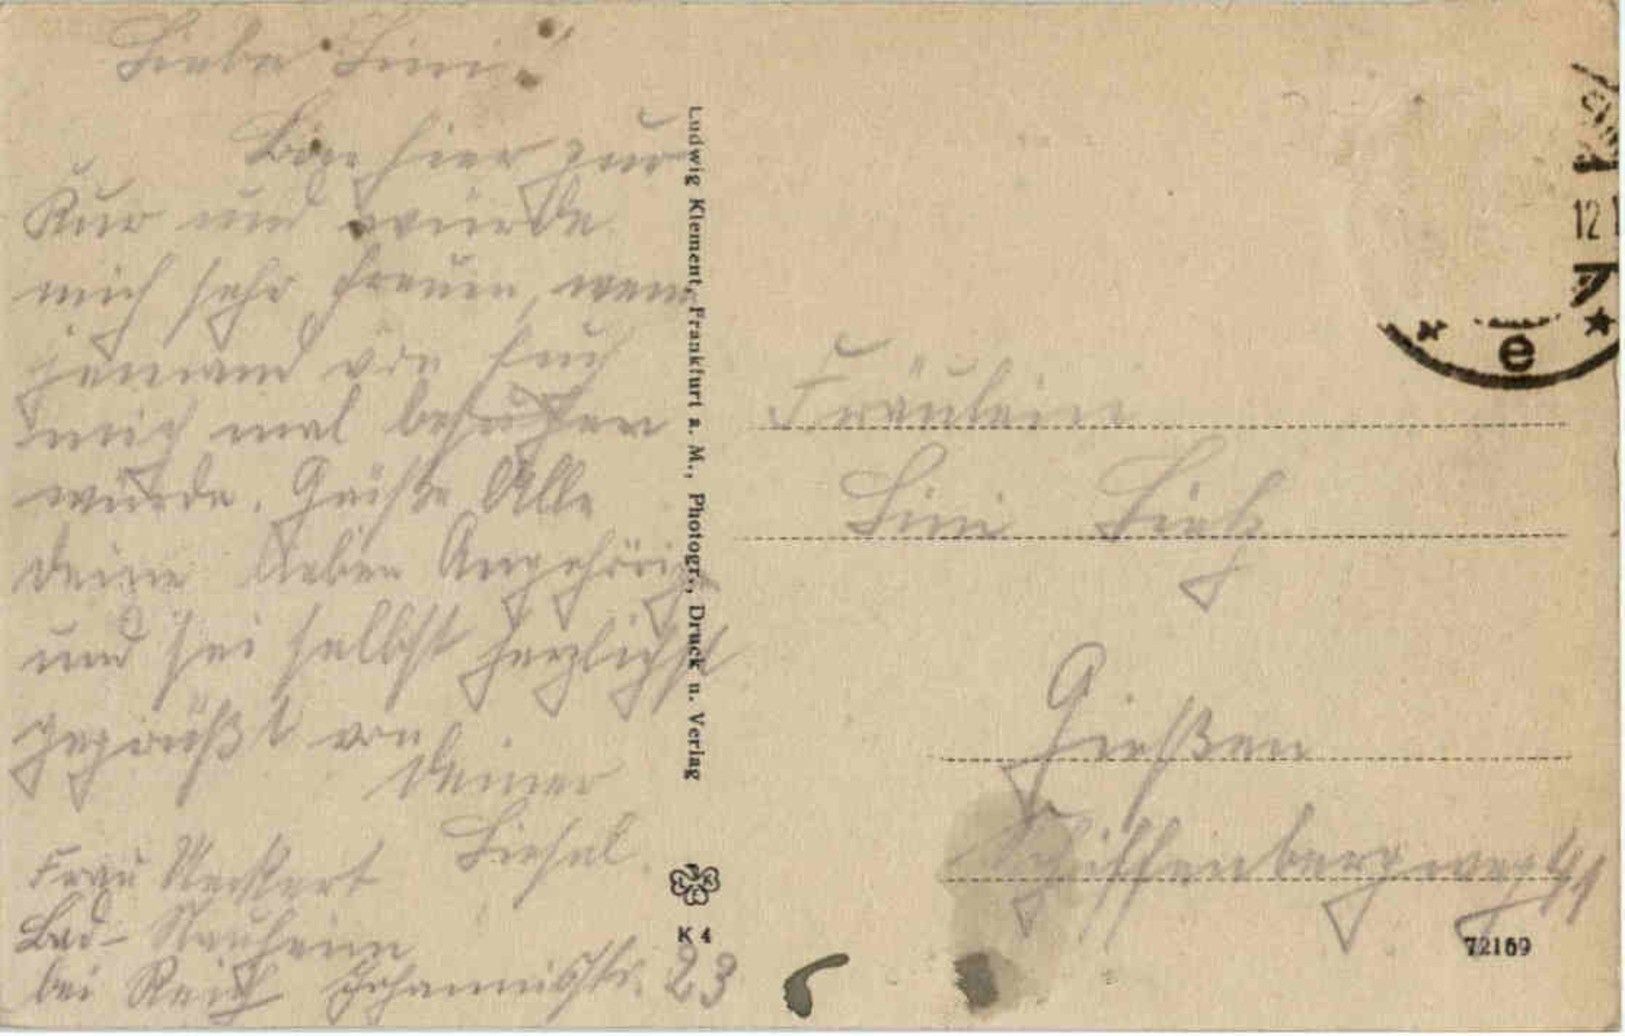 Liebe Lini!
Bin hier zur
Kur und würde
mich sehr freuen, wenn
jemand von Euch
mich mal besuchen
würde. Grüße Alle
deine lieben Angehörig.
und sei selbst herzlichst
gegrüßt von
deiner
Liesel.
Frau
Bad-Nauheim
bei Reich Johannisstr. 23
Ludwig Klement, Frankfurt a. M., Photogr., Druck u. Verlag
K 4
12
e
Fräulein
Lini
Gießen
Schiffenbergerweg
72169